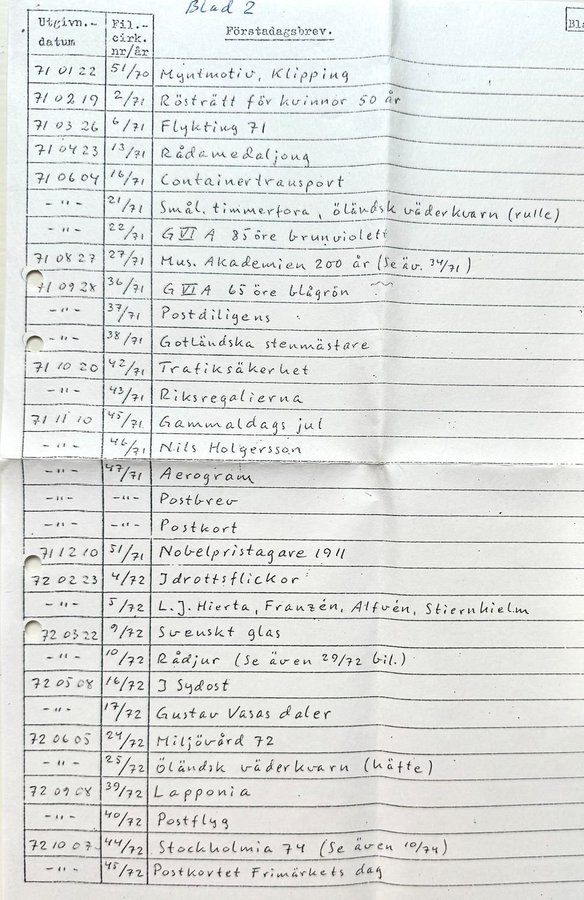 Blad 2
Utgivn.- datum Fil.- cirk. nr/år Förstadagsbrev. Bla
71 01 22 51/70 Myntmotiv, Klipping
71 02 19 2/71 Rösträtt för kvinnor 50 år
71 03 26 6/71 Flykting 71
71 04 23 13/71 Rådamedaljong
71 06 04 16/71 Containertransport
-"- 21/71 Smål. timmerfora, öländsk väderkvarn (rulle)
-"- 22/71 G VI A 85 öre brunviolett
71 08 27 27/71 Mus. Akademien 200 år (Se äv. 34/71)
71 09 28 36/71 G VI A 65 öre blågrön
-"- 37/71 Postdiligens
-"- 38/71 Gotländska stenmästare
71 10 20 42/71 Trafiksäkerhet
-"- 43/71 Riksregalierna
71 11 10 45/71 Gammaldags jul
-"- 46/71 Nils Holgersson
-"- 47/71 Aerogram
-"- -"- Postbrev
-"- -"- Postkort
71 12 10 51/71 Nobelpristagare 1911
72 02 23 4/72 Idrottsflickor
-"- 5/72 L.J. Hierta, Franzén, Alfvén, Stiernhielm
72 03 22 9/72 Svenskt glas
-"- 10/72 Rådjur (Se även 29/72 bil.)
72 05 08 16/72 I Sydost
-"- 17/72 Gustav Vasas daler
72 06 05 24/72 Miljövård 72
-"- 25/72 Öländsk väderkvarn (häfte)
72 09 08 39/72 Lapponia
-"- 40/72 Postflyg
72 10 07 44/72 Stockholmia 74 (Se även 10/74)
-"- 45/72 Postkortet Frimärkets dag